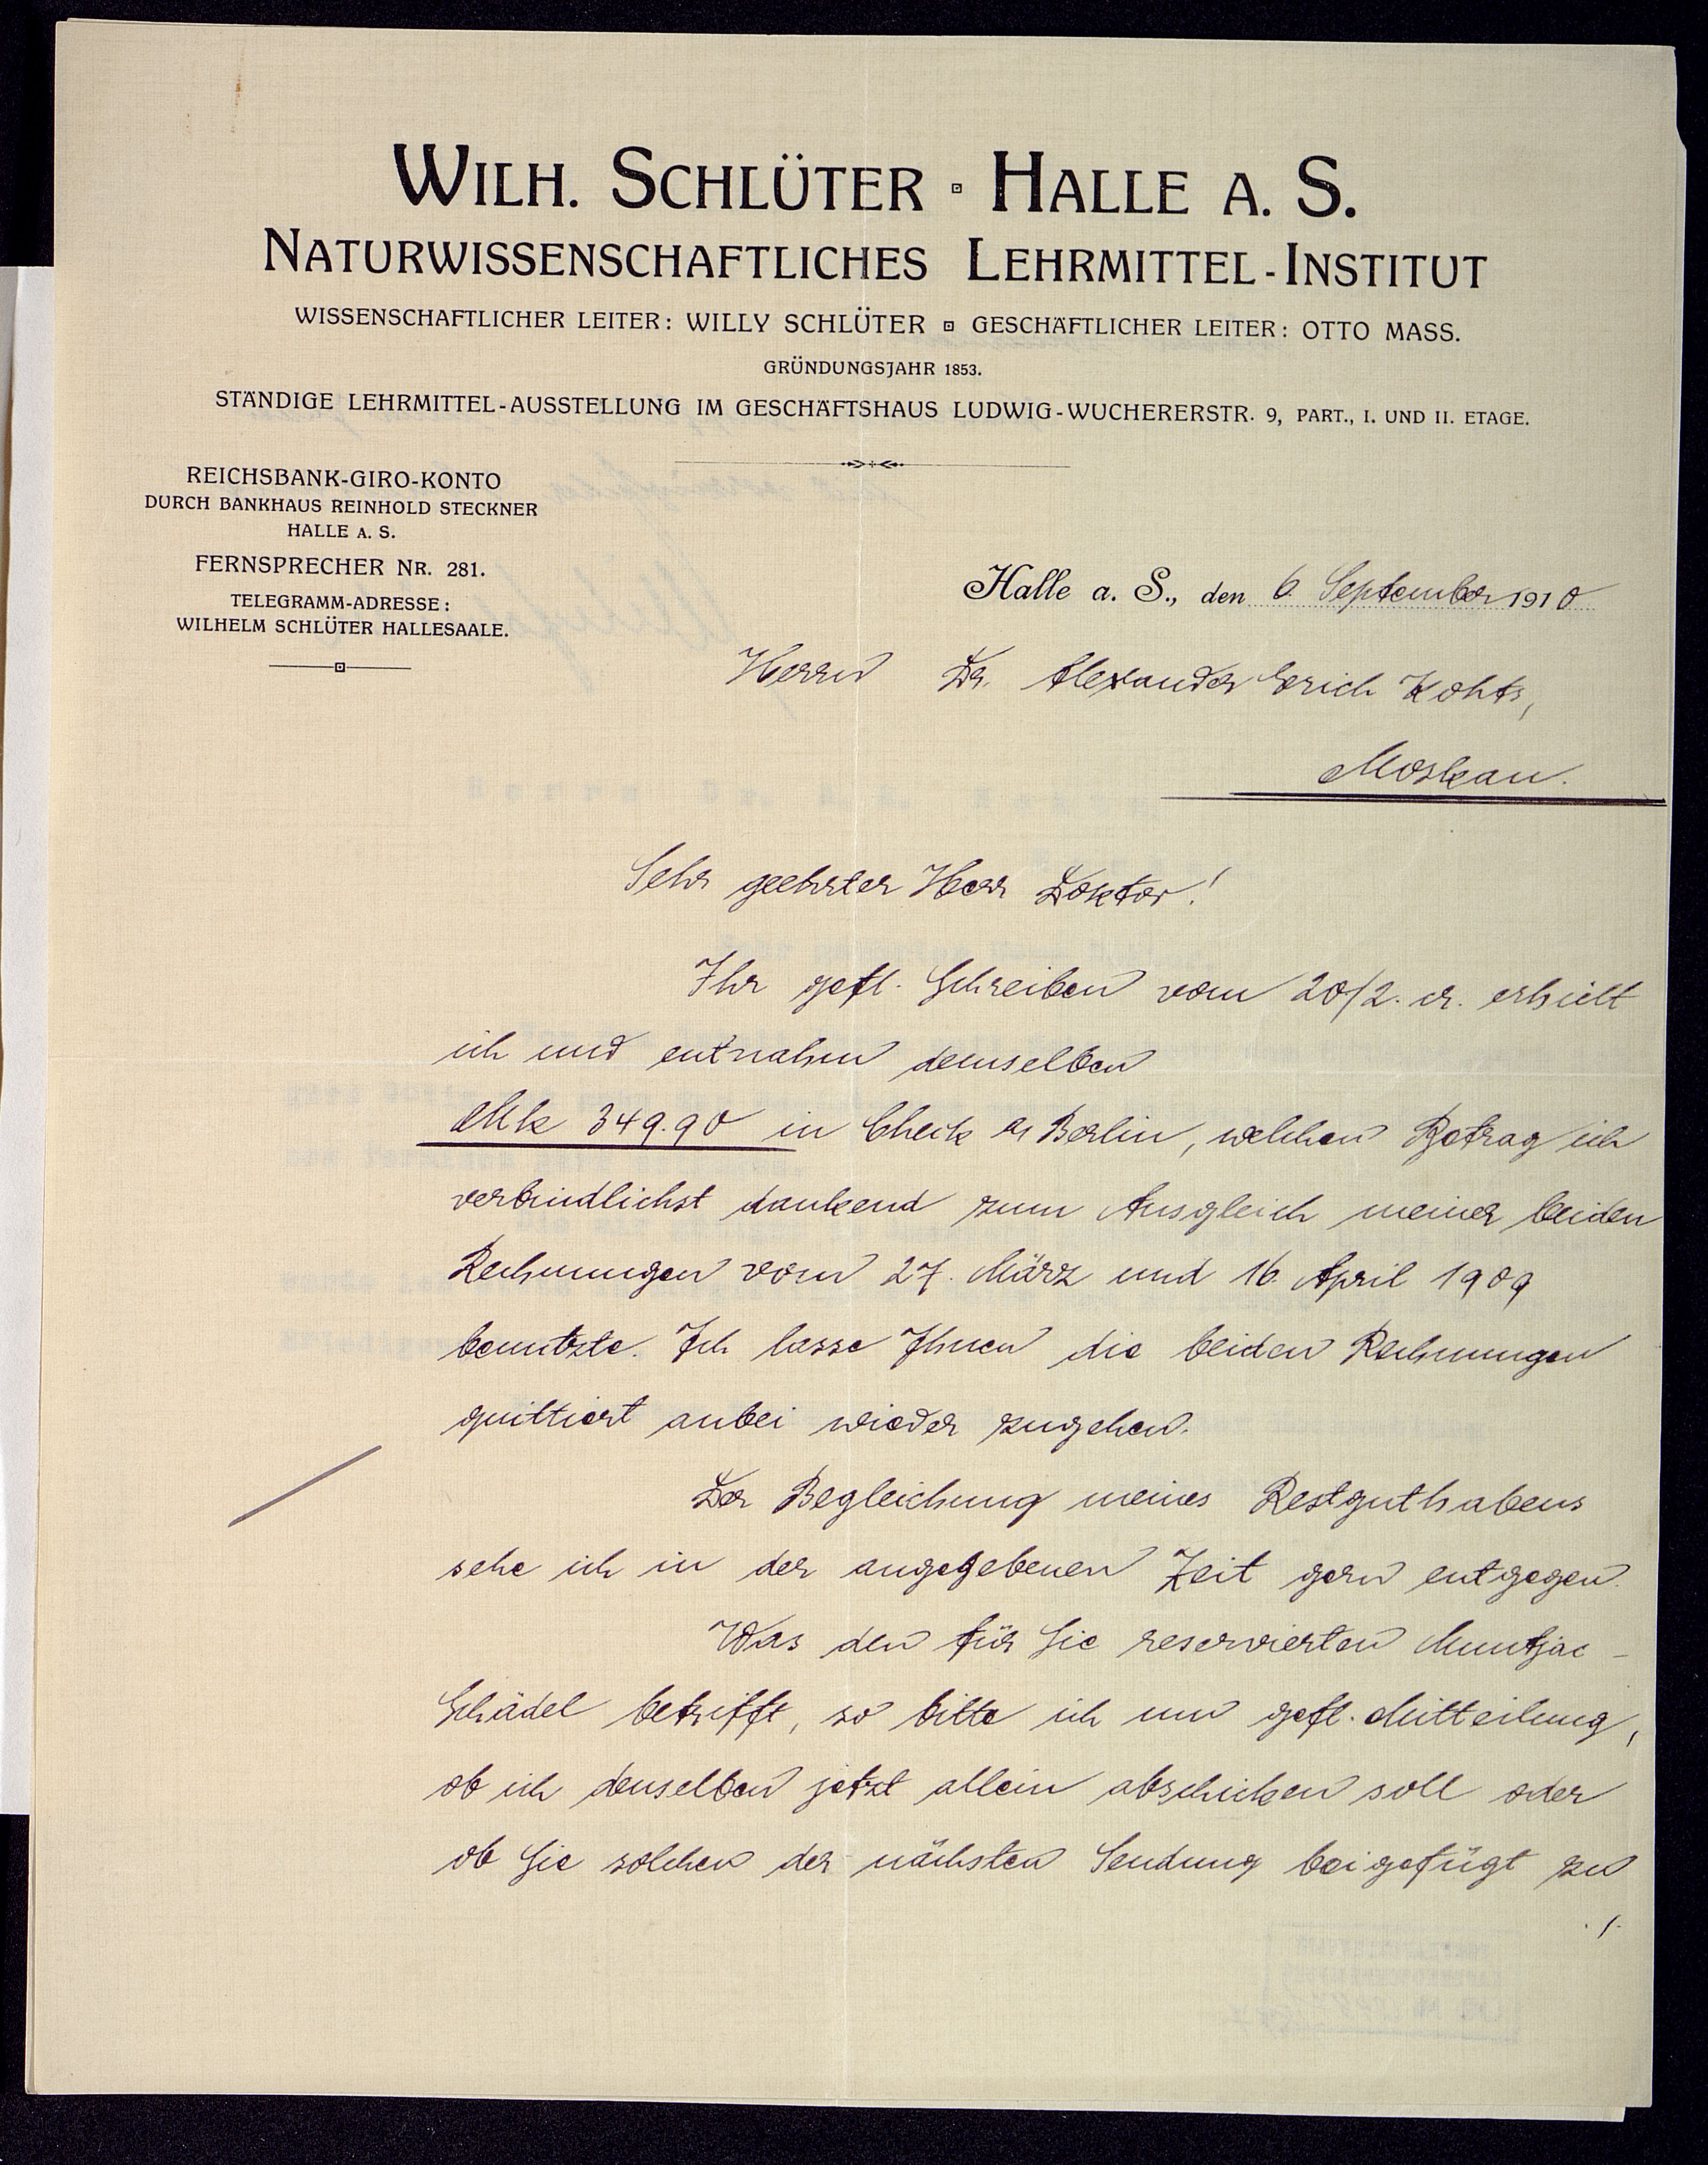 WILH. SCHLÜTER ▫ HALLE A. S.
NATURWISSENSCHAFTLICHES LEHRMITTEL-INSTITUT
WISSENSCHAFTLICHER LEITER: WILLY SCHLÜTER ▫ GESCHÄFTLICHER LEITER: OTTO MASS.
GRÜNDUNGSJAHR 1853.
STÄNDIGE LEHRMITTEL-AUSSTELLUNG IM GESCHÄFTSHAUS LUDWIG-WUCHERERSTR. 9, PART., I. UND II. ETAGE.
REICHSBANK-GIRO-KONTO
DURCH BANKHAUS REINHOLD STECKNER
HALLE A. S.
FERNSPRECHER NR. 281.
TELEGRAMM-ADRESSE:
WILHELM SCHLÜTER HALLESAALE.
Halle a. S., den 6. September 1910
Herrn Dr. Alexander Erich Kohts,
Moskau.
Sehr geehrter Herr Doktor!
Ihr gefl. Schreiben vom 20/2. cr. erhielt
ich und entnahm demselben
Mk 349.90 in Check a Berlin, welchen Betrag ich
verbindlichst dankend zum Ausgleich meiner beiden
Rechnungen vom 27. März und 16. April 1909
benutzte. Ich lasse Ihnen die beiden Rechnungen
quittiert anbei wieder zugehen.
Der Begleichung meines Restguthabens
sehe ich in der angegebenen Zeit gern entgegen.
Was den für Sie reservierten Muntjac-
Schädel betrifft, so bitte ich um gefl. Mitteilung,
ob ich denselben jetzt allein abschicken soll oder
ob Sie solchen der nächsten Sendung beigefügt zu
./.